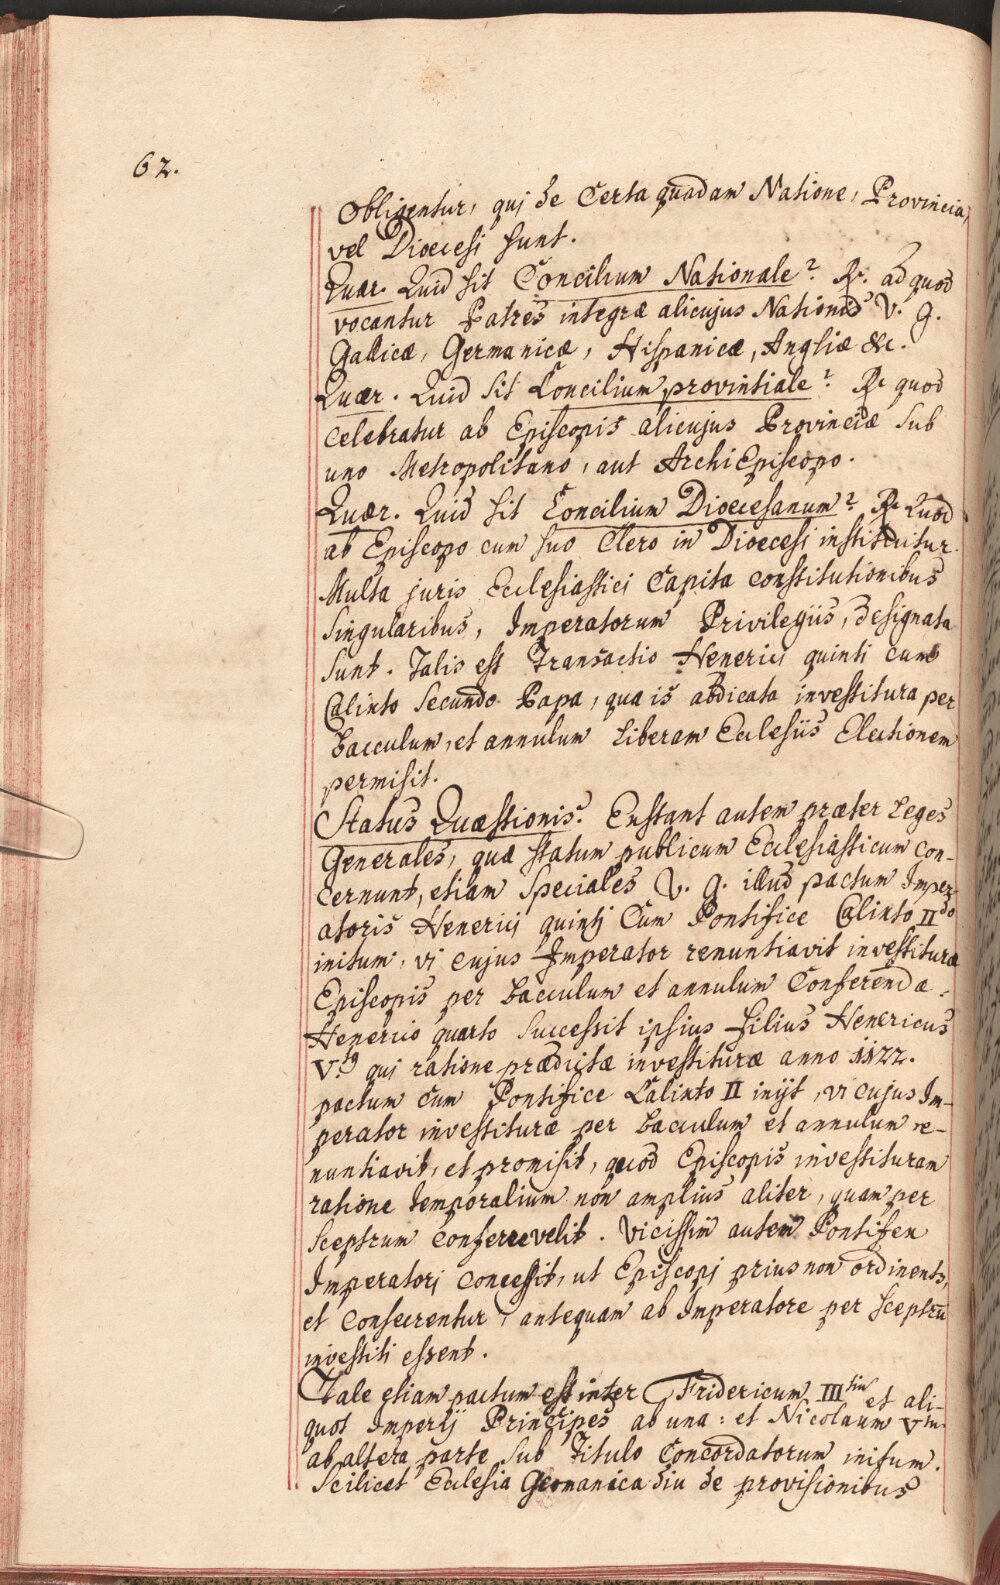 62.
Obligentur, qui de Certa quadam Natione, Provincia,
vel Dioecesi sunt.
Quær. Quid sit Concilium Nationale? R. ad quod
vocantur Patres integræ alicujus Nationis V. g.
Gallicæ, Germanicæ, Hispanicæ, Angliæ &c.
Quær. Quid sit Concilium provintiale? R. quod
celebratur ab Episcopis alicujus Provinciæ sub
uno Metropolitano, aut ArchiEpiscopo.
Quær. Quid sit Concilium Dioecesanum? R. Quod
ab Episcopo cum suo Clero in Dioecesi instituitur.
Multa juris Ecclesiastici Capita constitutionibus
singularibus, Imperatorum Privilegiis, designata
sunt. Talis est Transactio Henerici quinti cum
Calixto secundo Papa, qua is abdicata investitura per
bacculum, et annulum liberam Ecclesiis Electionem
permisit.
Status Quæstionis. Exstant autem præter Leges
Generales, quæ statum publicum Ecclesiasticum con-
cernunt, etiam speciales V. g. illud pactum Imper-
atoris Henerici quinti Cum Pontifice Calixto IIdo
initum, vi cujus Imperator renuntiavit investituræ
Episcopis per bacculum et annulum Conferendæ.
Henerico quarto successit ipsius filius Henericus
V.tq qui ratione prædictæ investituræ anno 1122.
pactum cum Pontifice Calixto II iniit, vi cujus Im-
perator investituræ per bacculum et annulum re-
nuntiavit, et promisit, quod Episcopis investituram
ratione temporalium non amplius aliter, quam per
sceptrum conferre velit. Vicissim autem Pontifex
Imperatori concessit, ut Episcopi prius non ordinentr,
et consecrentur, antequam ab Imperatore per sceptrū
investiti essent.
Tale etiam pactum est inter Fridericum IIItiu et ali-
quot Imperij Principes ab una: et Nicolaum Vtu
ab altera parte sub Titulo Concordatorum initum.
Scilicet Ecclesia Germanica diu de provisionibus